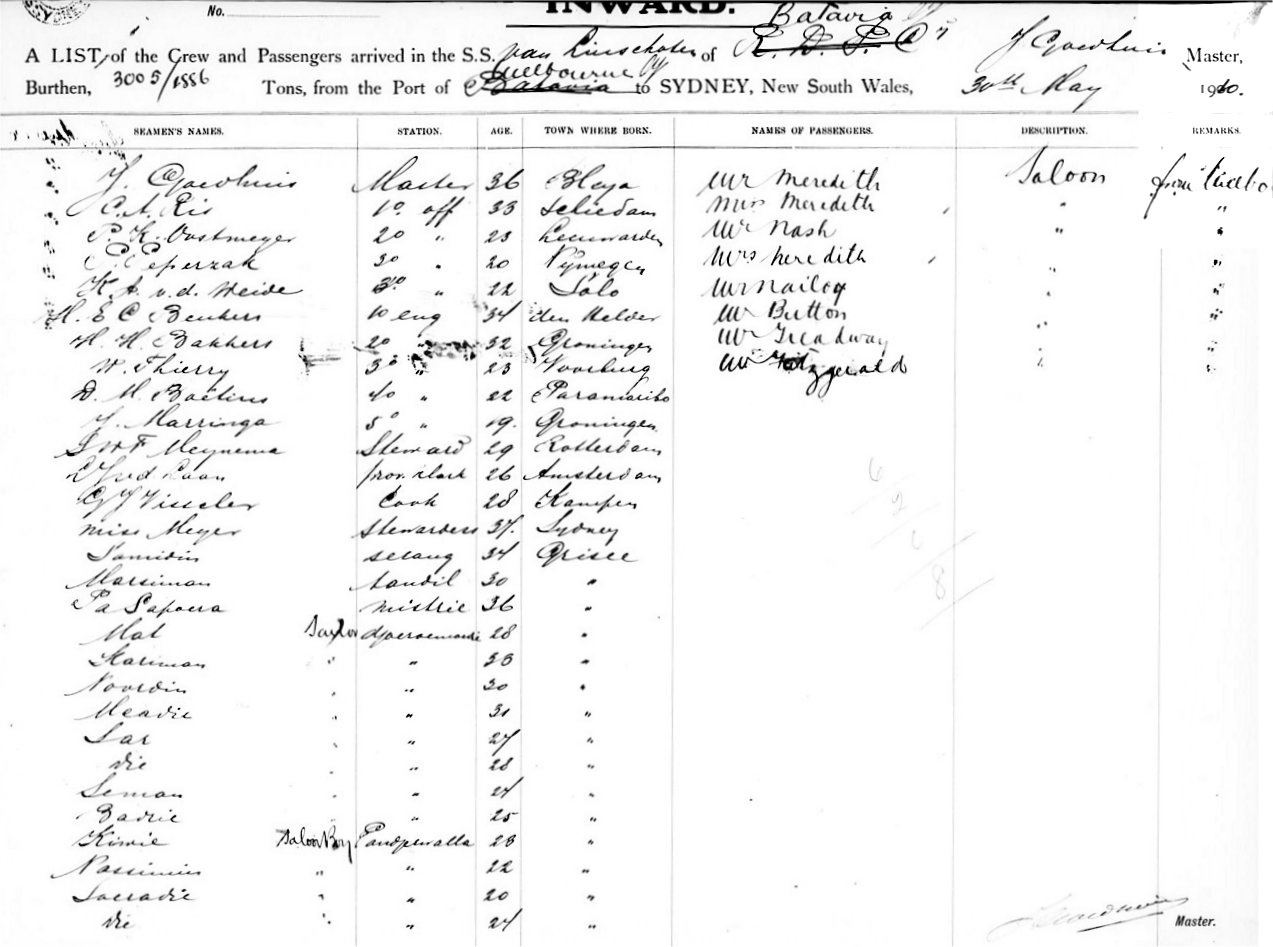 No.
INWARD.
Batavia
A LIST, of the Crew and Passengers arrived in the S.S. van Linschoten of K. D. P. Cy Master,
Melbourne
Burthen, 3005/1886 Tons, from the Port of Batavia to SYDNEY, New South Wales, 30th May 1910.
SEAMEN'S NAMES. STATION. AGE. TOWN WHERE BORN. NAMES OF PASSENGERS. DESCRIPTION. REMARKS.
Master 36 Mr Meredith Saloon from
C. A. Ris 1o. off 33 Schiedam Mrs Meredith " "
P. K. Oostmeyer 2o " 23 Leeuwarden Mr Nash " "
Peperzak 3o " 20 Nymegen Mrs Meredith " "
K. A. v. d. Heide 3o " 22 Solo Mr " "
H. E. C. Beukers 1o eng 34 den Helder Mr Button "
H. H. Bakkers 2o " 32 Groningen Mr Treadway " "
W. Thierry 3o " 23 Voorburg Mr Fitzgerald " "
D. M. Boëtius 4o " 22 Paramaribo
J. Marringa 5o " 19. Groningen
Meynema Steward 29 Rotterdam
prov. clerk 26 Amsterdam
Visscher Cook 28 Kampen
Miss Meyer Stewardess 37. Sydney
Samidin serang 34 Grisee
Marsiman tandil 30 "
Pa Sapoera mistrie 36 "
Mat Saylor djoeroemoedie 28 "
Kariman " " 38 "
Noordin " " 30 "
Meadie " " 31 "
Sar " " 27 "
Die " " 28 "
Seman " " 24 "
Badrie " " 25 "
Kimie Saloon Boy 28 "
Nassimin " " 22 "
Soeradie " " 20 "
Die " " 24 "
Master.